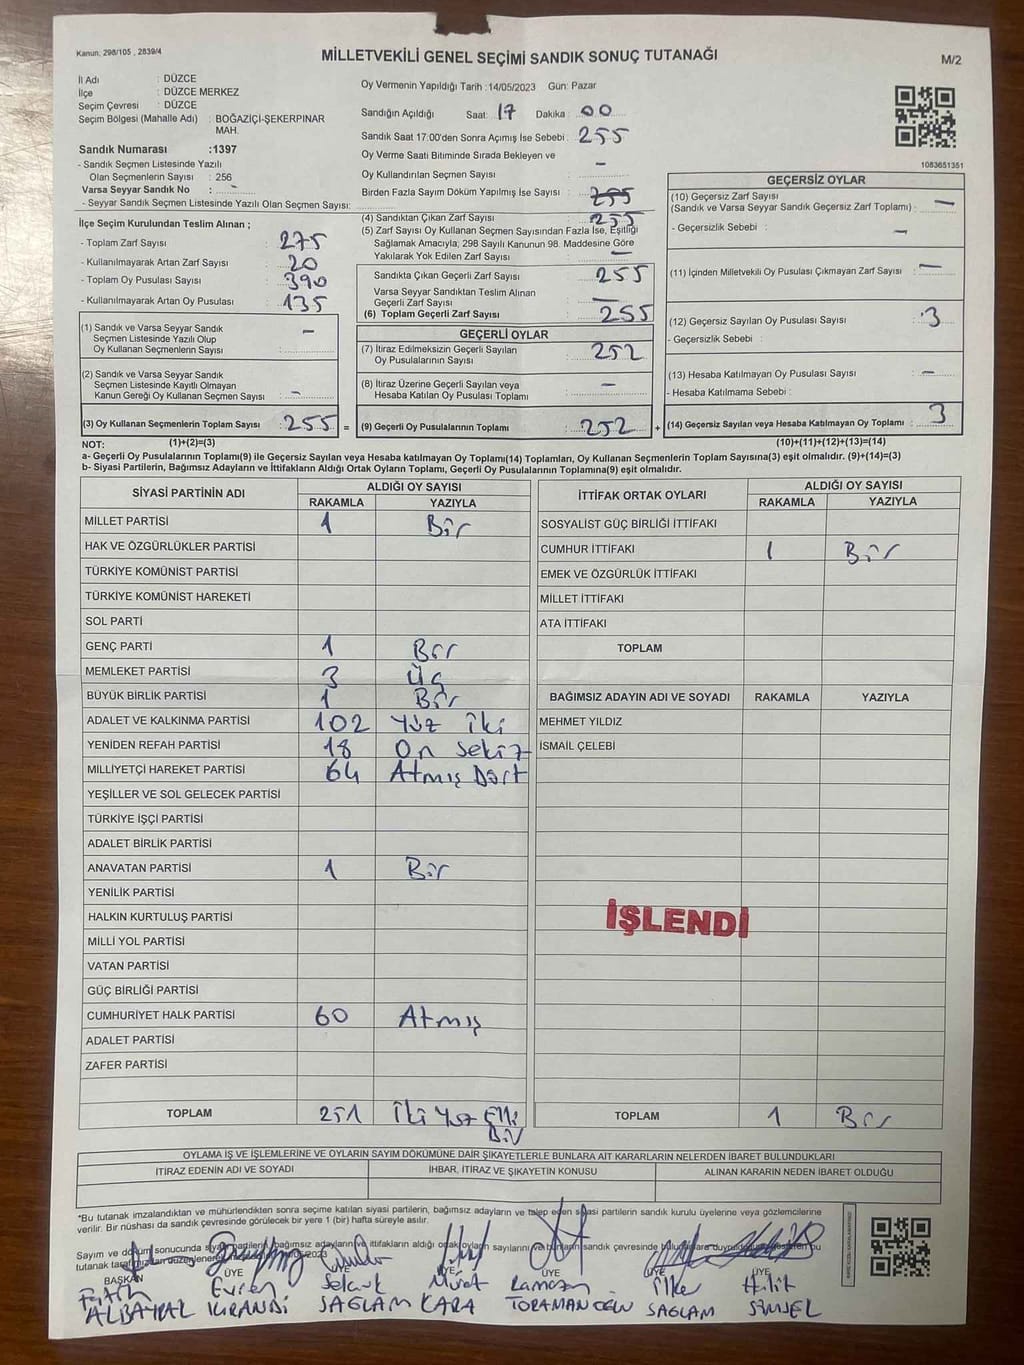 Kanun, 298/105 , 2839/4
MİLLETVEKİLİ GENEL SEÇİMİ SANDIK SONUÇ TUTANAĞI
M/2
İl Adı : DÜZCE
İlçe : DÜZCE MERKEZ
Seçim Çevresi : DÜZCE
Seçim Bölgesi (Mahalle Adı) : BOĞAZİÇİ-ŞEKERPINAR
MAH.
Sandık Numarası :1397
- Sandık Seçmen Listesinde Yazılı
Olan Seçmenlerin Sayısı : 256
Varsa Seyyar Sandık No : -
- Seyyar Sandık Seçmen Listesinde Yazılı Olan Seçmen Sayısı:
Oy Vermenin Yapıldığı Tarih :14/05/2023 Gün: Pazar
Sandığın Açıldığı Saat: 17 Dakika : 00
Sandık Saat 17.00'den Sonra Açımış İse Sebebi : 255
Oy Verme Saati Bitiminde Sırada Bekleyen ve
Oy Kullandırılan Seçmen Sayısı : -
Birden Fazla Sayım Döküm Yapılmış İse Sayısı : 255
1083651351
İlçe Seçim Kurulundan Teslim Alınan ;
- Toplam Zarf Sayısı : 275
- Kullanılmayarak Artan Zarf Sayısı : 20
- Toplam Oy Pusulası Sayısı : 390
- Kullanılmayarak Artan Oy Pusulası : 135
(1) Sandık ve Varsa Seyyar Sandık
Seçmen Listesinde Yazılı Olup
Oy Kullanan Seçmenlerin Sayısı : -
(2) Sandık ve Varsa Seyyar Sandık
Seçmen Listesinde Kayıtlı Olmayan
Kanun Gereği Oy Kullanan Seçmen Sayısı : -
(3) Oy Kullanan Seçmenlerin Toplam Sayısı : 255 =
(4) Sandıktan Çıkan Zarf Sayısı : 255
(5) Zarf Sayısı Oy Kullanan Seçmen Sayısından Fazla İse, Eşitliği
Sağlamak Amacıyla, 298 Sayılı Kanunun 98. Maddesine Göre
Yakılarak Yok Edilen Zarf Sayısı : -
Sandıkta Çıkan Geçerli Zarf Sayısı : 255
Varsa Seyyar Sandıktan Teslim Alınan
Geçerli Zarf Sayısı : -
(6) Toplam Geçerli Zarf Sayısı : 255
GEÇERLİ OYLAR
(7) İtiraz Edilmeksizin Geçerli Sayılan
Oy Pusulalarının Sayısı : 252
(8) İtiraz Üzerine Geçerli Sayılan veya
Hesaba Katılan Oy Pusulası Toplamı : -
(9) Geçerli Oy Pusulalarının Toplamı : 252 +
GEÇERSİZ OYLAR
(10) Geçersiz Zarf Sayısı
(Sandık ve Varsa Seyyar Sandık Geçersiz Zarf Toplamı) : -
- Geçersizlik Sebebi : -
(11) İçinden Milletvekili Oy Pusulası Çıkmayan Zarf Sayısı : -
(12) Geçersiz Sayılan Oy Pusulası Sayısı : 3
- Geçersizlik Sebebi :
(13) Hesaba Katılmayan Oy Pusulası Sayısı : -
- Hesaba Katılmama Sebebi :
(14) Geçersiz Sayılan veya Hesaba Katılmayan Oy Toplamı : 3
NOT: (1)+(2)=(3) (10)+(11)+(12)+(13)=(14)
a- Geçerli Oy Pusulasının Toplamı(9) ile Geçersiz Sayılan veya Hesaba katılmayan Oy Toplamı(14) Toplamları, Oy Kullanan Seçmenlerin Toplam Sayısına(3) eşit olmalıdır. (9)+(14)=(3)
b- Siyasi Partilerin, Bağımsız Adayların ve İttifakların Aldığı Ortak Oyların Toplamı, Geçerli Oy Pusulalarının Toplamına(9) eşit olmalıdır.
SİYASİ PARTİNİN ADI ALDIĞI OY SAYISI
RAKAMLA YAZIYLA
MİLLET PARTİSİ 1 Bir
HAK VE ÖZGÜRLÜKLER PARTİSİ
TÜRKİYE KOMÜNİST PARTİSİ
TÜRKİYE KOMÜNİST HAREKETİ
SOL PARTİ
GENÇ PARTİ 1 Bir
MEMLEKET PARTİSİ 3 Üç
BÜYÜK BİRLİK PARTİSİ 1 Bir
ADALET VE KALKINMA PARTİSİ 102 Yüz iki
YENİDEN REFAH PARTİSİ 18 On Sekiz
MİLLİYETÇİ HAREKET PARTİSİ 64 Atmış Dört
YEŞİLLER VE SOL GELECEK PARTİSİ
TÜRKİYE İŞÇİ PARTİSİ
ADALET BİRLİK PARTİSİ
ANAVATAN PARTİSİ 1 Bir
YENİLİK PARTİSİ
HALKIN KURTULUŞ PARTİSİ
MİLLİ YOL PARTİSİ
VATAN PARTİSİ
GÜÇ BİRLİĞİ PARTİSİ
CUMHURİYET HALK PARTİSİ 60 Atmış
ADALET PARTİSİ
ZAFER PARTİSİ
TOPLAM 251 İki Yüz Elli
Bir
İTTİFAK ORTAK OYLARI ALDIĞI OY SAYISI
RAKAMLA YAZIYLA
SOSYALİST GÜÇ BİRLİĞİ İTTİFAKI
CUMHUR İTTİFAKI 1 Bir
EMEK VE ÖZGÜRLÜK İTTİFAKI
MİLLET İTTİFAKI
ATA İTTİFAKI
TOPLAM
BAĞIMSIZ ADAYIN ADI VE SOYADI RAKAMLA YAZIYLA
MEHMET YILDIZ
İSMAİL ÇELEBİ
İŞLENDİ
TOPLAM 1 Bir
OYLAMA İŞ VE İŞLEMLERİNE VE OYLARIN SAYIM DÖKÜMÜNE DAİR ŞİKAYETLERLE BUNLARA AİT KARARLARIN NELERDEN İBARET BULUNDUKLARI
İTİRAZ EDENİN ADI VE SOYADI İHBAR, İTİRAZ VE ŞİKAYETİN KONUSU ALINAN KARARIN NEDEN İBARET OLDUĞU
*Bu tutanak imzalandıktan ve mühürlendikten sonra seçime katılan siyasi partilerin, bağımsız adayların ve talep eden siyasi partilerin sandık kurulu üyelerine veya gözlemcilerine
verilir. Bir nüshası da sandık çevresinde görülecek bir yere 1 (bir) hafta süreyle asılır.
Sayım ve döküm sonucunda siyasi partilerin, bağımsız adayların ve ittifakların aldığı ortak oyların sayılarını ve bunların sandık çevresinde
tutanak tarafımızdan düzenlenerek
BAŞKAN ÜYE ÜYE ÜYE ÜYE ÜYE
Fatih Evren Selçuk Murat Ramazan İlker Halit
ALBAYRAL SAĞLAM KARA TORAMANOĞLU SAĞLAM ŞİMŞEL